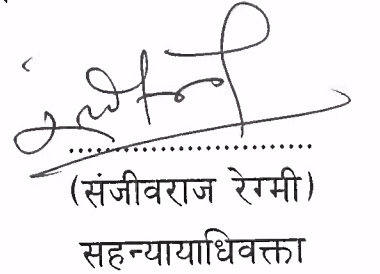 ..............................
(संजीवराज रेग्मी)
सहन्यायाधिवक्ता